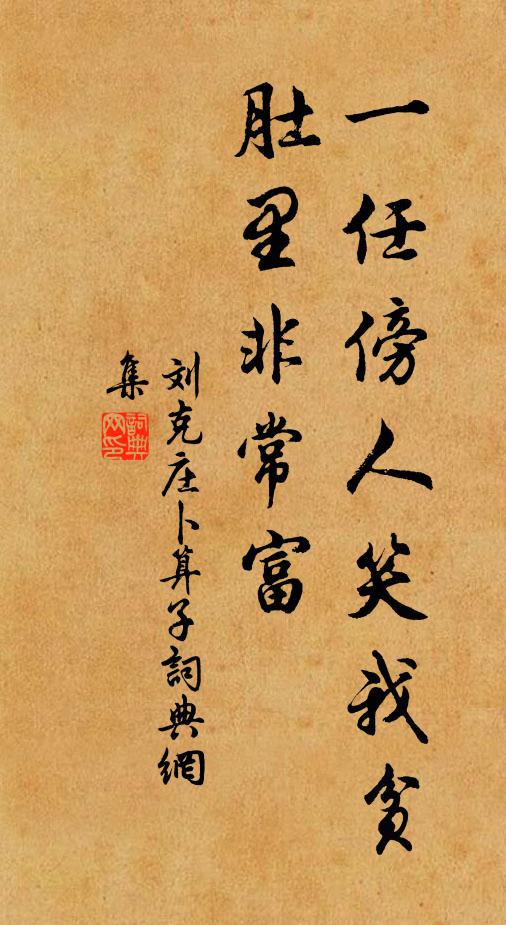 一任傍人笑我貧
肚里非常富
刘克庄卜算子詞典網
集
詞典网印